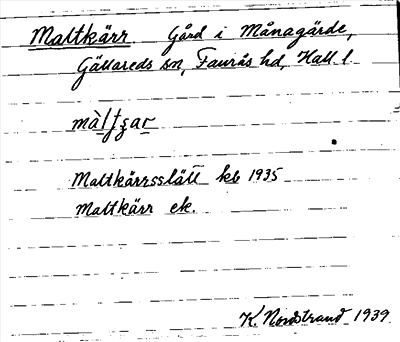 Maltkärr Gård i Månagärde,
Gällareds sn, Faurås hd, Hall. l.
Maltkärrsslätt kb 1935
Maltkärr ek.
K. Nordstrand 1939